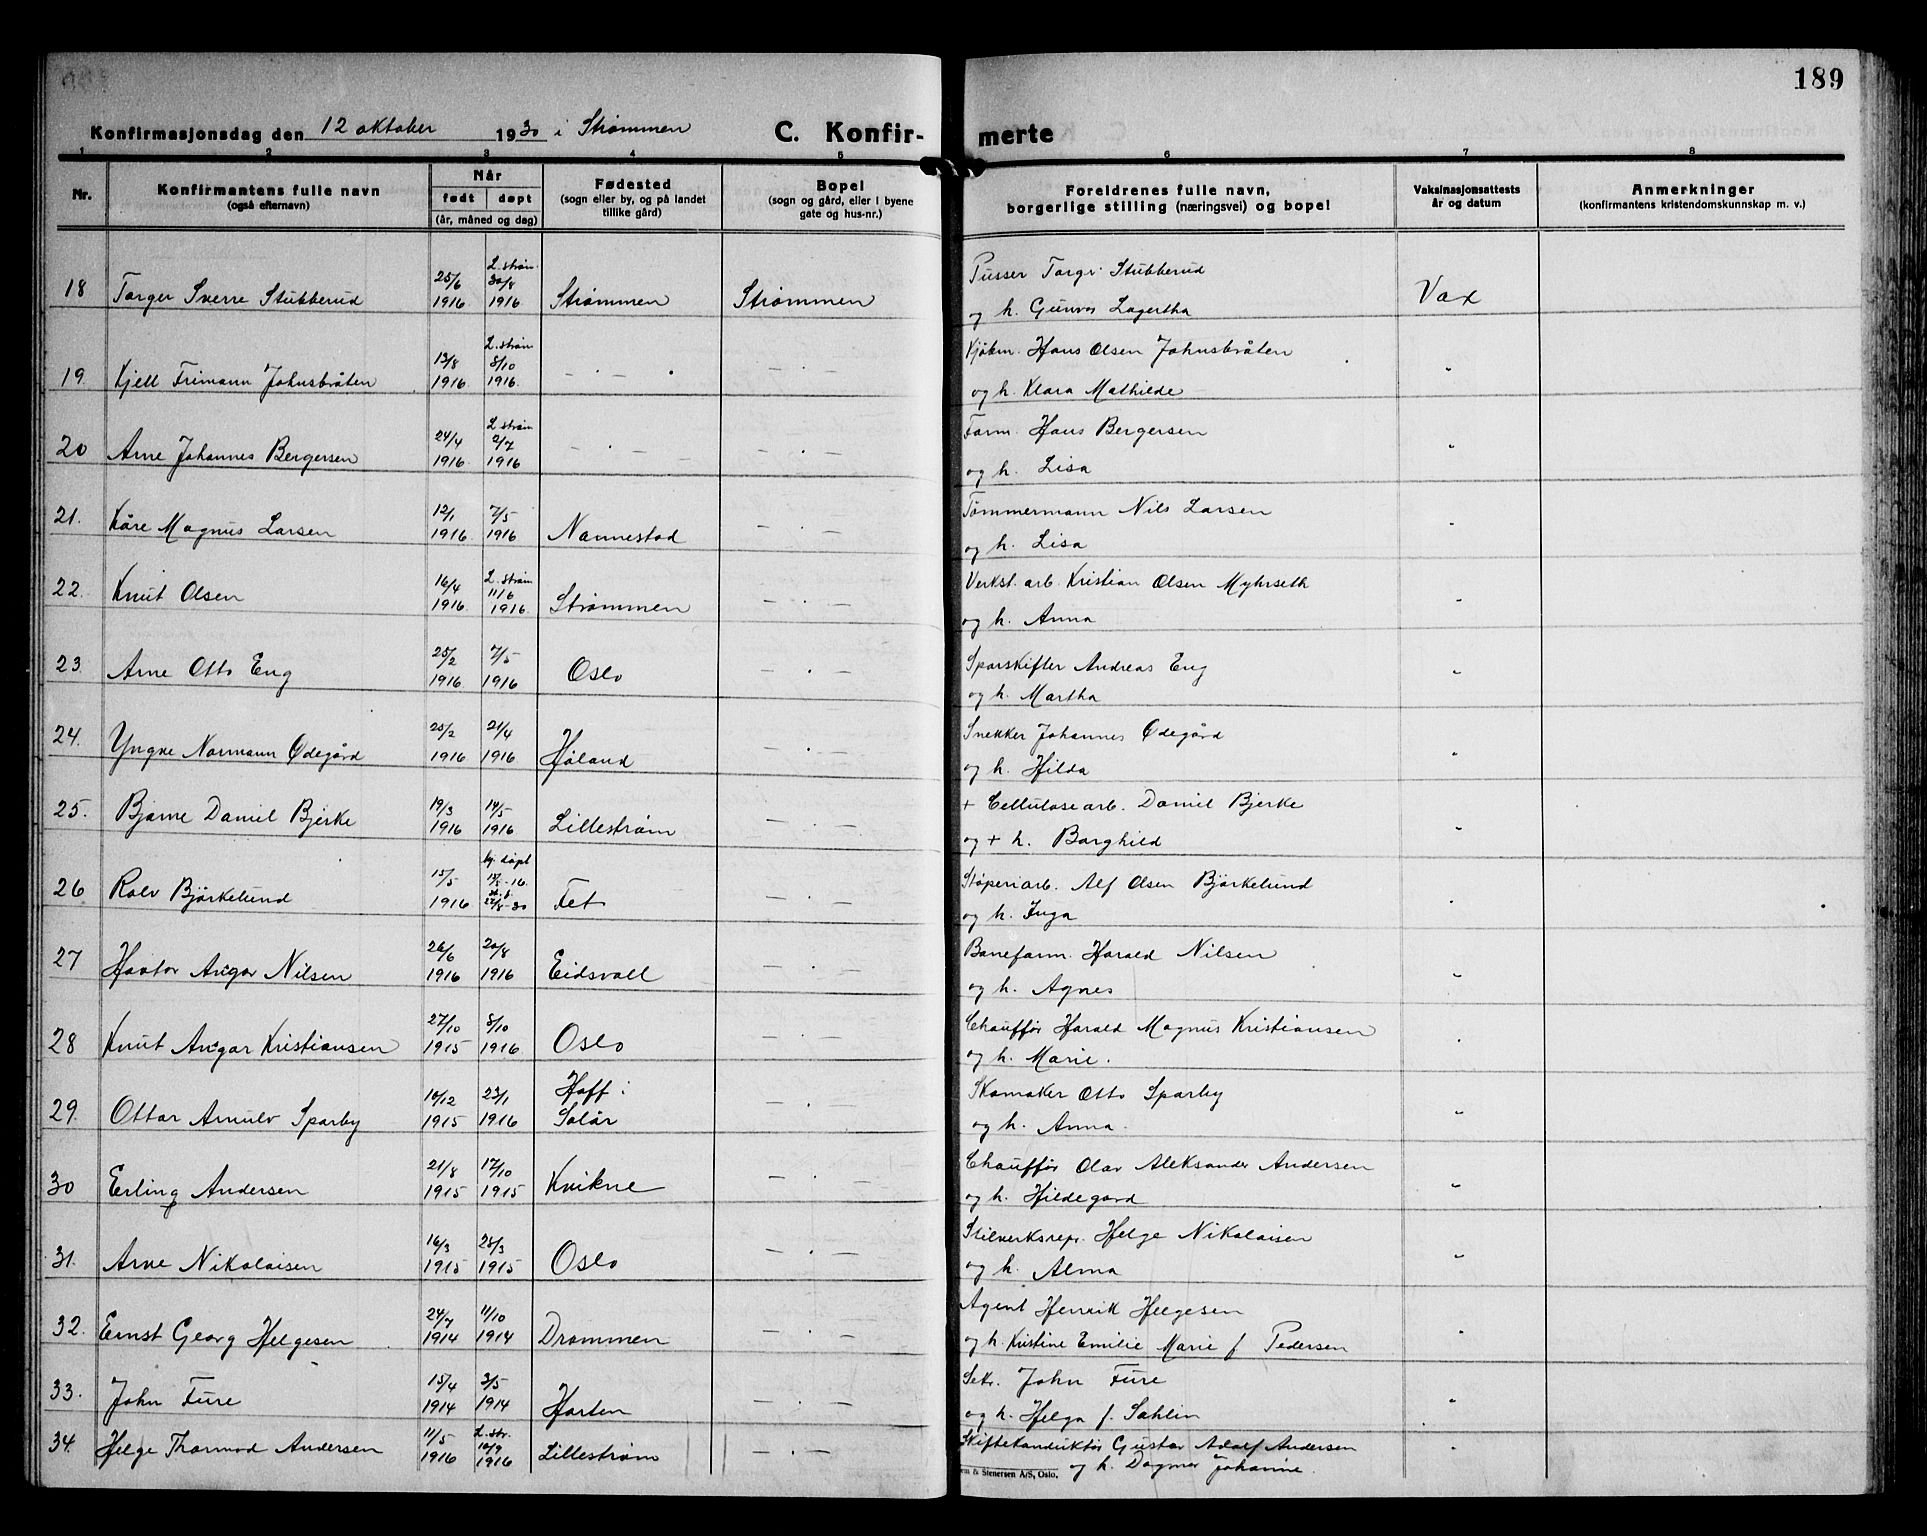 189
Konfirmasjonsdag den 12 oktober 1930 i Strømmen
C. Konfir-
merte
1 2 3 4 5 6 7 8
Nr.
Konfirmantens fulle navn
(også efternavn)
Når
født døpt
(år, måned og dag)
Fødested
(sogn eller by, og på landet
tillike gård)
Bopel
(sogn og gård, eller i byene
gate og hus-nr.)
Foreldrenes fulle navn,
borgerlige stilling (næringsvei) og bopel
Vaksinasjonsattests
år og datum
Anmerkninger
(konfirmantens kristendomskunnskap m. v.)
18 Torger Sverre Stubberud 25/6 1916 L. strøm. 30/8 1916 Strømmen Strømmen
Pusser Torgr. Stubberud
og h. Gunvor Lagertha Vax
19. Kjell Frimann Johnsbråten 13/8 1916 L. strøm 8/10 1916. - . - . - . -
Kjøbm. Hans Olsen Johnsbråten
og h. Klara Mathilde "
20 Arne Johannes Bergersen 24/4 1916. L strøm 2/7 1916 - - - - - . -
Form. Hans Bergersen
og h. Lisa "
21. Kåre Magnus Larsen 12/1 1916 7/5 1916 Nannestad - . -
Tømmermann Nils Larsen
og h. Lisa "
22. Knut Olsen 16/4 1916. L. strøm 11/6 1916. Strømmen - . -
Verkst. arb. Kristian Olsen Myhrseth
og h. Anna "
23 Arne Otto Eng 25/2 1916. 7/5 1916 Oslo - . -
Sporskifter Andreas Eng
og h. Martha "
24. Yngve Normann Ødegård 20/2 1916 21/4 1916 Høland - . -
Snekker Johannes Ødegård
og h. Hilda "
25. Bjarne Daniel Bjerke 19/3 1916 14/5 1916 Lillestrøm - . -
+ Cellulosearb. Daniel Bjerke
og + h. Borghild "
26 Rolv Bjørkelund 15/5 1916 hj. døpt 1916 Fet - . -
Støperiarb. Alf Olsen Bjørkelund
og h. Inga "
27 Havtor Angar Nilsen 26/6 1916 20/8 1916 Eidsvoll - . -
Baneform. Harald Nilsen
og h. Agnes "
28 Knut Angar Kristiansen 27/10 1915 8/10 1916 Oslo - . -
Chauffør Harald Magnus Kristiansen
og h. Marie. "
29. Ottar Arnulv Sparby 10/12 1915 23/1 1916 Hoff i Solør - . -
Skomaker Otto Sparby
og h. Anna. "
30 Erling Andersen 21/8 1915 17/10 1915 Kvikne - . -
Chauffør Olav Aleksander Andersen
og h. Hildegard "
31. Arne Nikolaisen 16/3 1915 28/3 1915 Oslo - . -
Stilverksrepr. Helge Nikolaisen
og h. Alma "
32. Ernst Georg Helgesen 24/7 1914 11/10 1914 Drammen - . -
Agent Henrik Helgesen
og h. Kristine Emilie Marie f Pedersen "
33. John Fure 15/4 1914 3/5 1914 Horten - . -
Sekr. John Fure
og h. Helga f. Sahlin "
34. Helge Thormod Andersen 11/5 1916 L. str. 10/9 1916 Lillestrøm - . -
Skiftekonduktør Gustav Adolf Andersen
og h. Dagmar Johanne. "
& Stenersen A/S, Oslo.